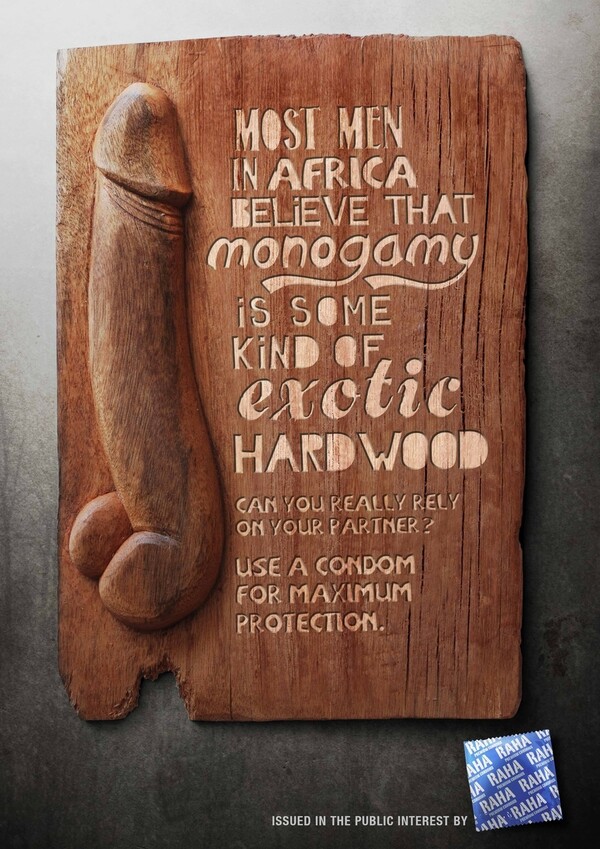 MOST MEN
IN AFRICA
BELiEVE THAT
monogamy
iS SOME
KiND OF
exotic
HARDWOOD
CAN YOU REALLY RELY
ON YOUR PARTNER?
USE A CONDOM
FOR MAXIMUM
PROTECTION.
RAHA RAHA
RAHA RAHA
RAHA RAHA
RAHA RAHA
ISSUED IN THE PUBLIC INTEREST BY